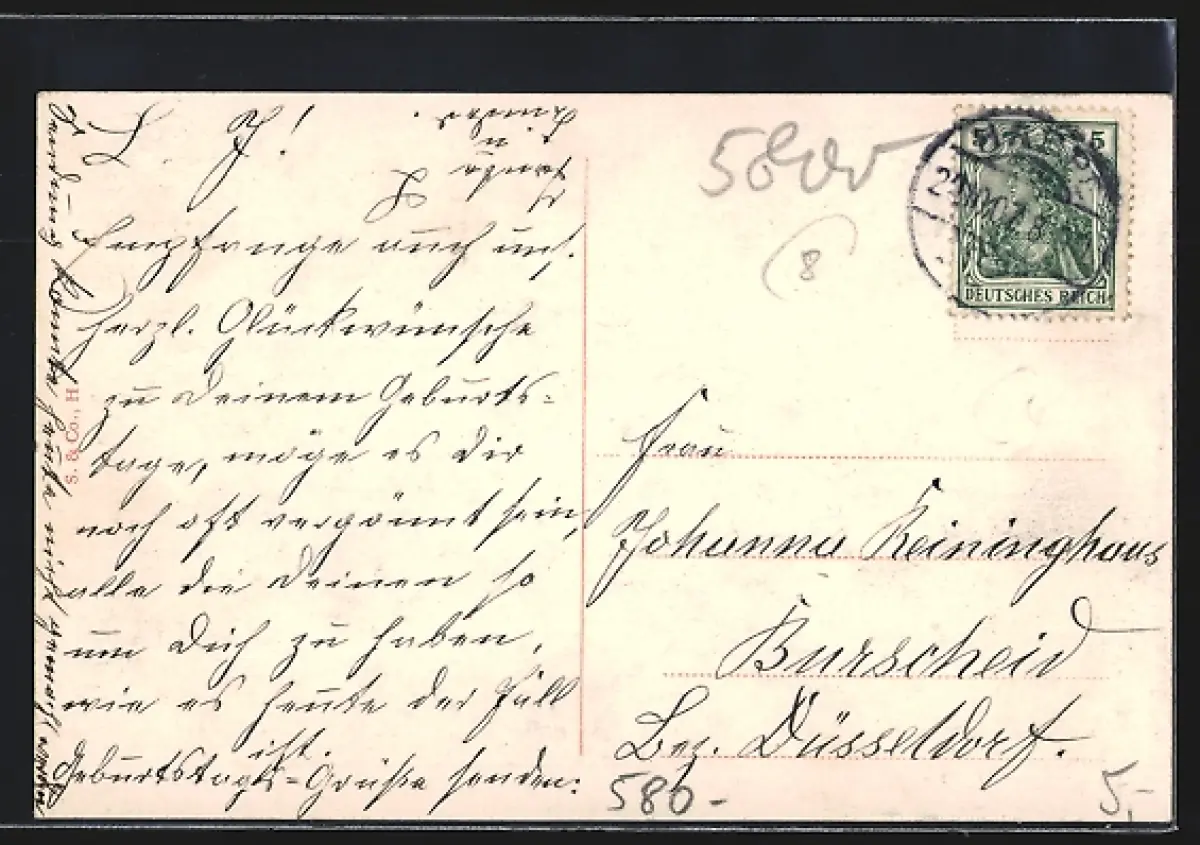 L. J.!
Empfange auch uns.
herzl. Glückwünsche
zu Deinem Geburts=
tage, möge es dir
noch oft vergönnt sein,
alle die Deinen so
um Dich zu haben,
wie es heute der Fall
ist.
Geburtstags=Grüße senden:
u.
S. & Co., H
5800
8
5 5
DEUTSCHES REICH
Frau
Johanna Reininghaus
Burscheid
Bez. Düsseldorf.
580-
5,-